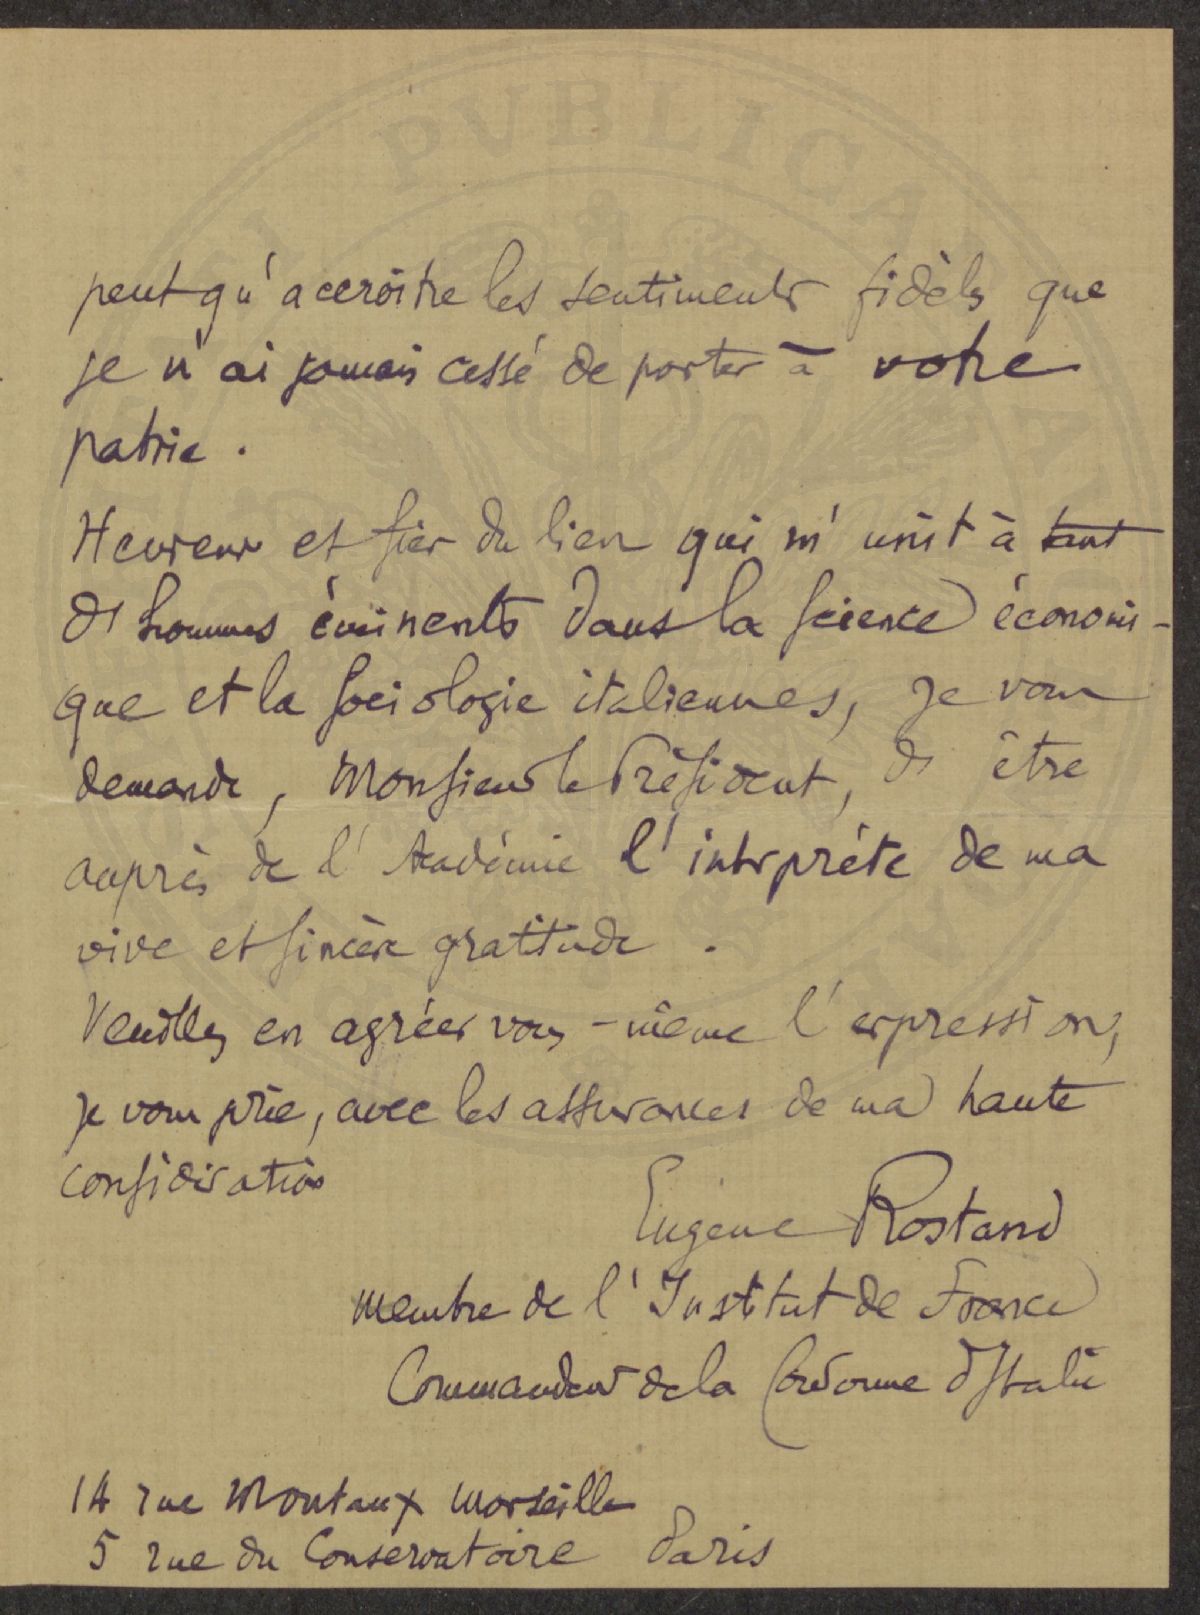 PVBLICA
peut qu'accroître les sentiments fidèles que
je n'ai jamais cessé de porter à votre
patrie.
Heureux et fier du lien qui m'unit à tant
d'hommes éminents dans la science économi-
que et la sociologie italiennes, je vous
demande, Monsieur le Président, d'être
auprès de l'Académie l'interprète de ma
vive et sincère gratitude.
Veuillez en agréer vous-même l'expression,
je vous prie, avec les assurances de ma haute
considération
Eugène Rostand
membre de l'Institut de France
Commandeur de la Couronne d'Italie
14 rue Montaux Marseille
5 rue du Conservatoire Paris